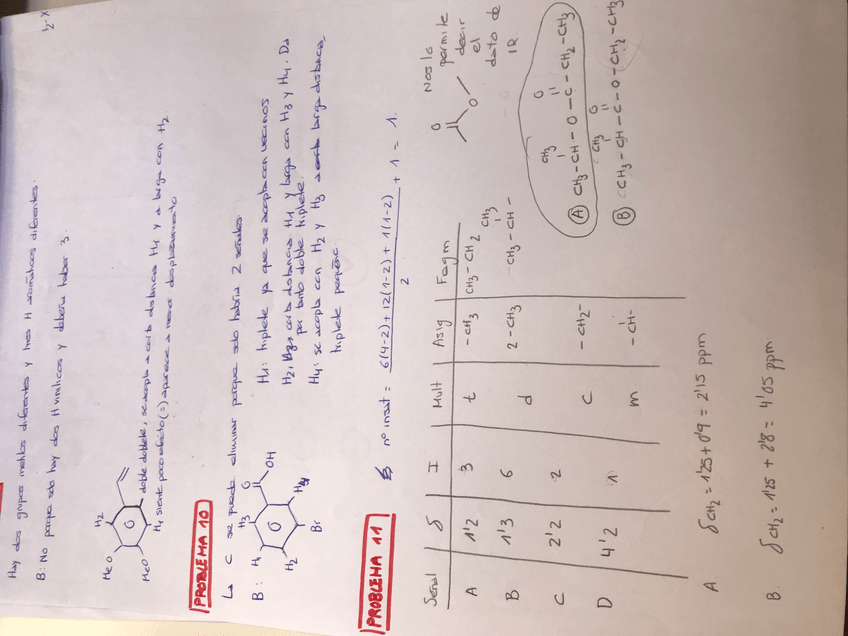 ½-X
Hay dos grupos metilos diferentes y tres H aromáticos diferentes.
B: No porque solo hay dos H vinílicos y debería haber 3.
MeO
H2
MeO
doble doblete, se acopla a corta distancia H1 y a larga con H2
H1 siente poco efecto (=) aparece a menor desplazamiento
PROBLEMA 10
La C se puede eliminar porque solo habría 2 señales
B:
H1
H3
O
OH
H2
Br
H4
H1: triplete ya que se acopla con vecinos
H2, corta distancia H1 y larga con H3 y H4. Da
por tanto doble triplete.
H4: se acopla con H2 y H3 larga distancia
triplete pequeño
PROBLEMA 11
nº insat = 6(4-2) + 12(1-2) + 1(1-2) / 2 + 1 = 1.
Señal δ I Mult Asig Fragm
A 1'2 3 t -CH3 CH3-CH2
B 1'3 6 d 2-CH3 CH3-CH- CH3
C 2'2 2 C -CH2-
D 4'2 1 m -CH-
O
O
Nos lo
permite
decir
el
dato de
IR
CH3 O
A CH3-CH-O-C-CH2-CH3
CH3 O
B CH3-CH-C-O-CH2-CH3
A. δCH2 = 1'25+0'9 = 2'15 ppm
B. δCH2 = 1'25 + 2'8 = 4'05 ppm